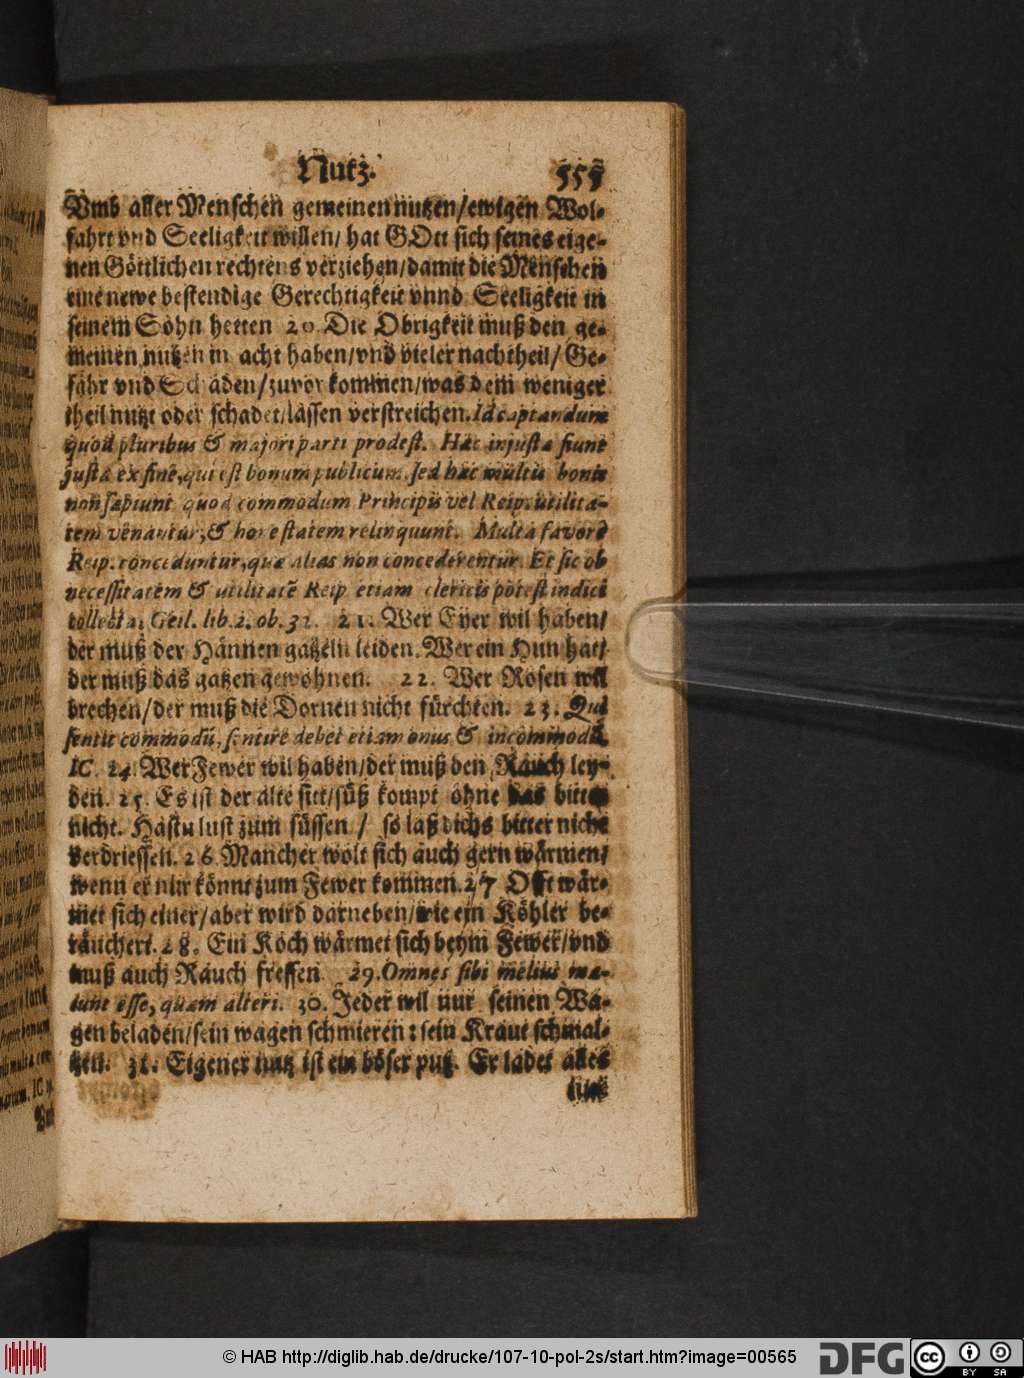 Nutz.
555
Vmb aller Menschen gemeinen nutzen/ewigen Wol-
fahrt vnd Seeligkeit willen/ hat GOtt sich seines eige-
nen Göttlichen rechtens verziehen/damit die Menschen
eine newe bestendige Gerechtigkeit vnnd Seeligkeit in
seinem Sohn hetten 20. Die Obrigkeit muß den ge-
meinen nutzen in acht haben/vnd vieler nachtheil/ Ge-
fahr vnd Schaden/zuvor kommen/was dem weniger
theil nutzt oder schadet/lassen verstreichen. Id captandum
quod pluribus & majori parti prodest. Hæc injusta fiunt
justa ex fine, qui est bonum publicum, sed hæc multis bonis
non sapiunt quod commodum Principis vel Reip. utilita-
tem venantur, & honestatem relinquunt. Multa favore
Reip. conceduntur, quæ alias non concederentur. Et sic ob
necessitatem & utilitatē Reip etiam clericis potest indici
collecta, Geil. lib. 2. ob. 32. 21. Wer Eyer wil haben/
der muß der Hännen gatzeln leiden. Wer ein Hun hat/
der muß das gatzen gewohnen. 22. Wer Rosen will
brechen/der muß die Dornen nicht fürchten. 23. Qui
sentit commodū, sentire debet etiam onus & incommodū.
IC. 24. Wer Fewer wil haben/der muß den Rauch ley-
den. 25. Es ist der alte sitt/süß kompt ohne das bitter
nicht. Hastu lust zum süssen / so laß dichs bitter nicht
verdriessen. 26. Mancher wolt sich auch gern wärmen/
wenn er nur könnt zum Fewer kommen. 27 Offt wär-
met sich einer/aber wird darneben/wie ein Köhler be-
räuchert. 28. Ein Koch wärmet sich beym Fewer/vnd
muß auch Rauch fressen 29. Omnes sibi melius ma-
lunt esse, quam alteri. 30. Jeder wil nur seinen Wa-
gen beladen/sein wagen schmieren: sein Kraut schmal-
tzen. 31. Eigener nutz ist ein böser putz. Er ladet alles
© HAB http://diglib.hab.de/drucke/107-10-pol-2s/start.htm?image=00565
DFG
cc
BY SA